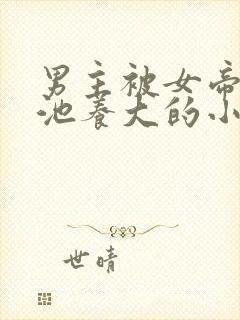 男主被女帝
池养大的小
世晴